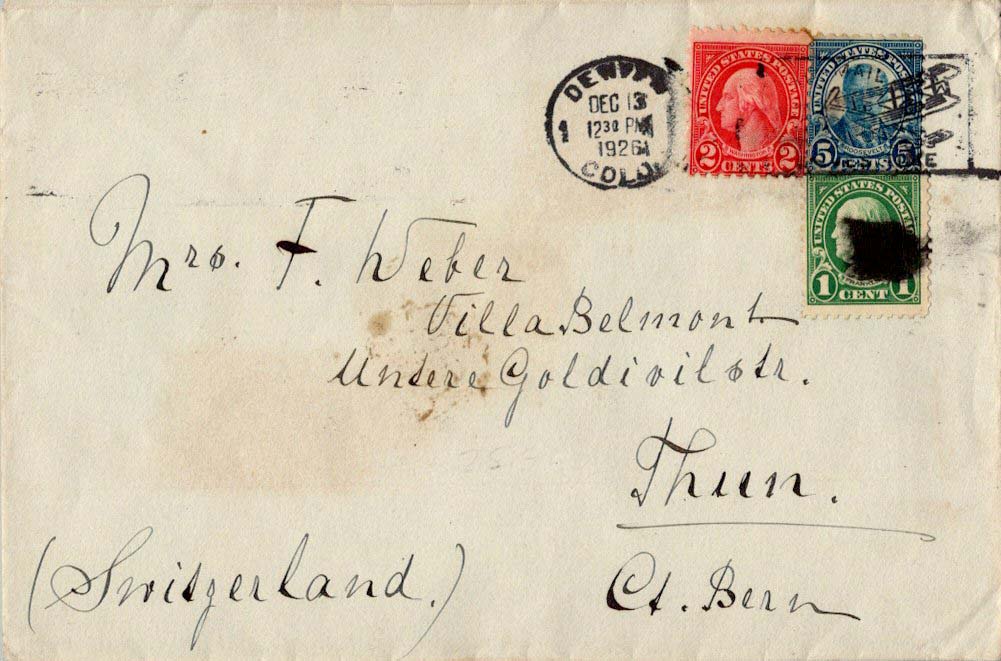 DENVER
1
DEC 13
12 30 PM
1926
COLO.
UNITED STATES POSTAGE
WASHINGTON
2 CENTS 2
UNITED STATES POSTAGE
ROOSEVELT
5 CENTS 5
UNITED STATES POSTAGE
FRANKLIN
1 CENT 1
Mrs. F. Weber
Villa Belmont
Untere Goldivilstr.
Thun.
(Switzerland.)
Ct. Bern